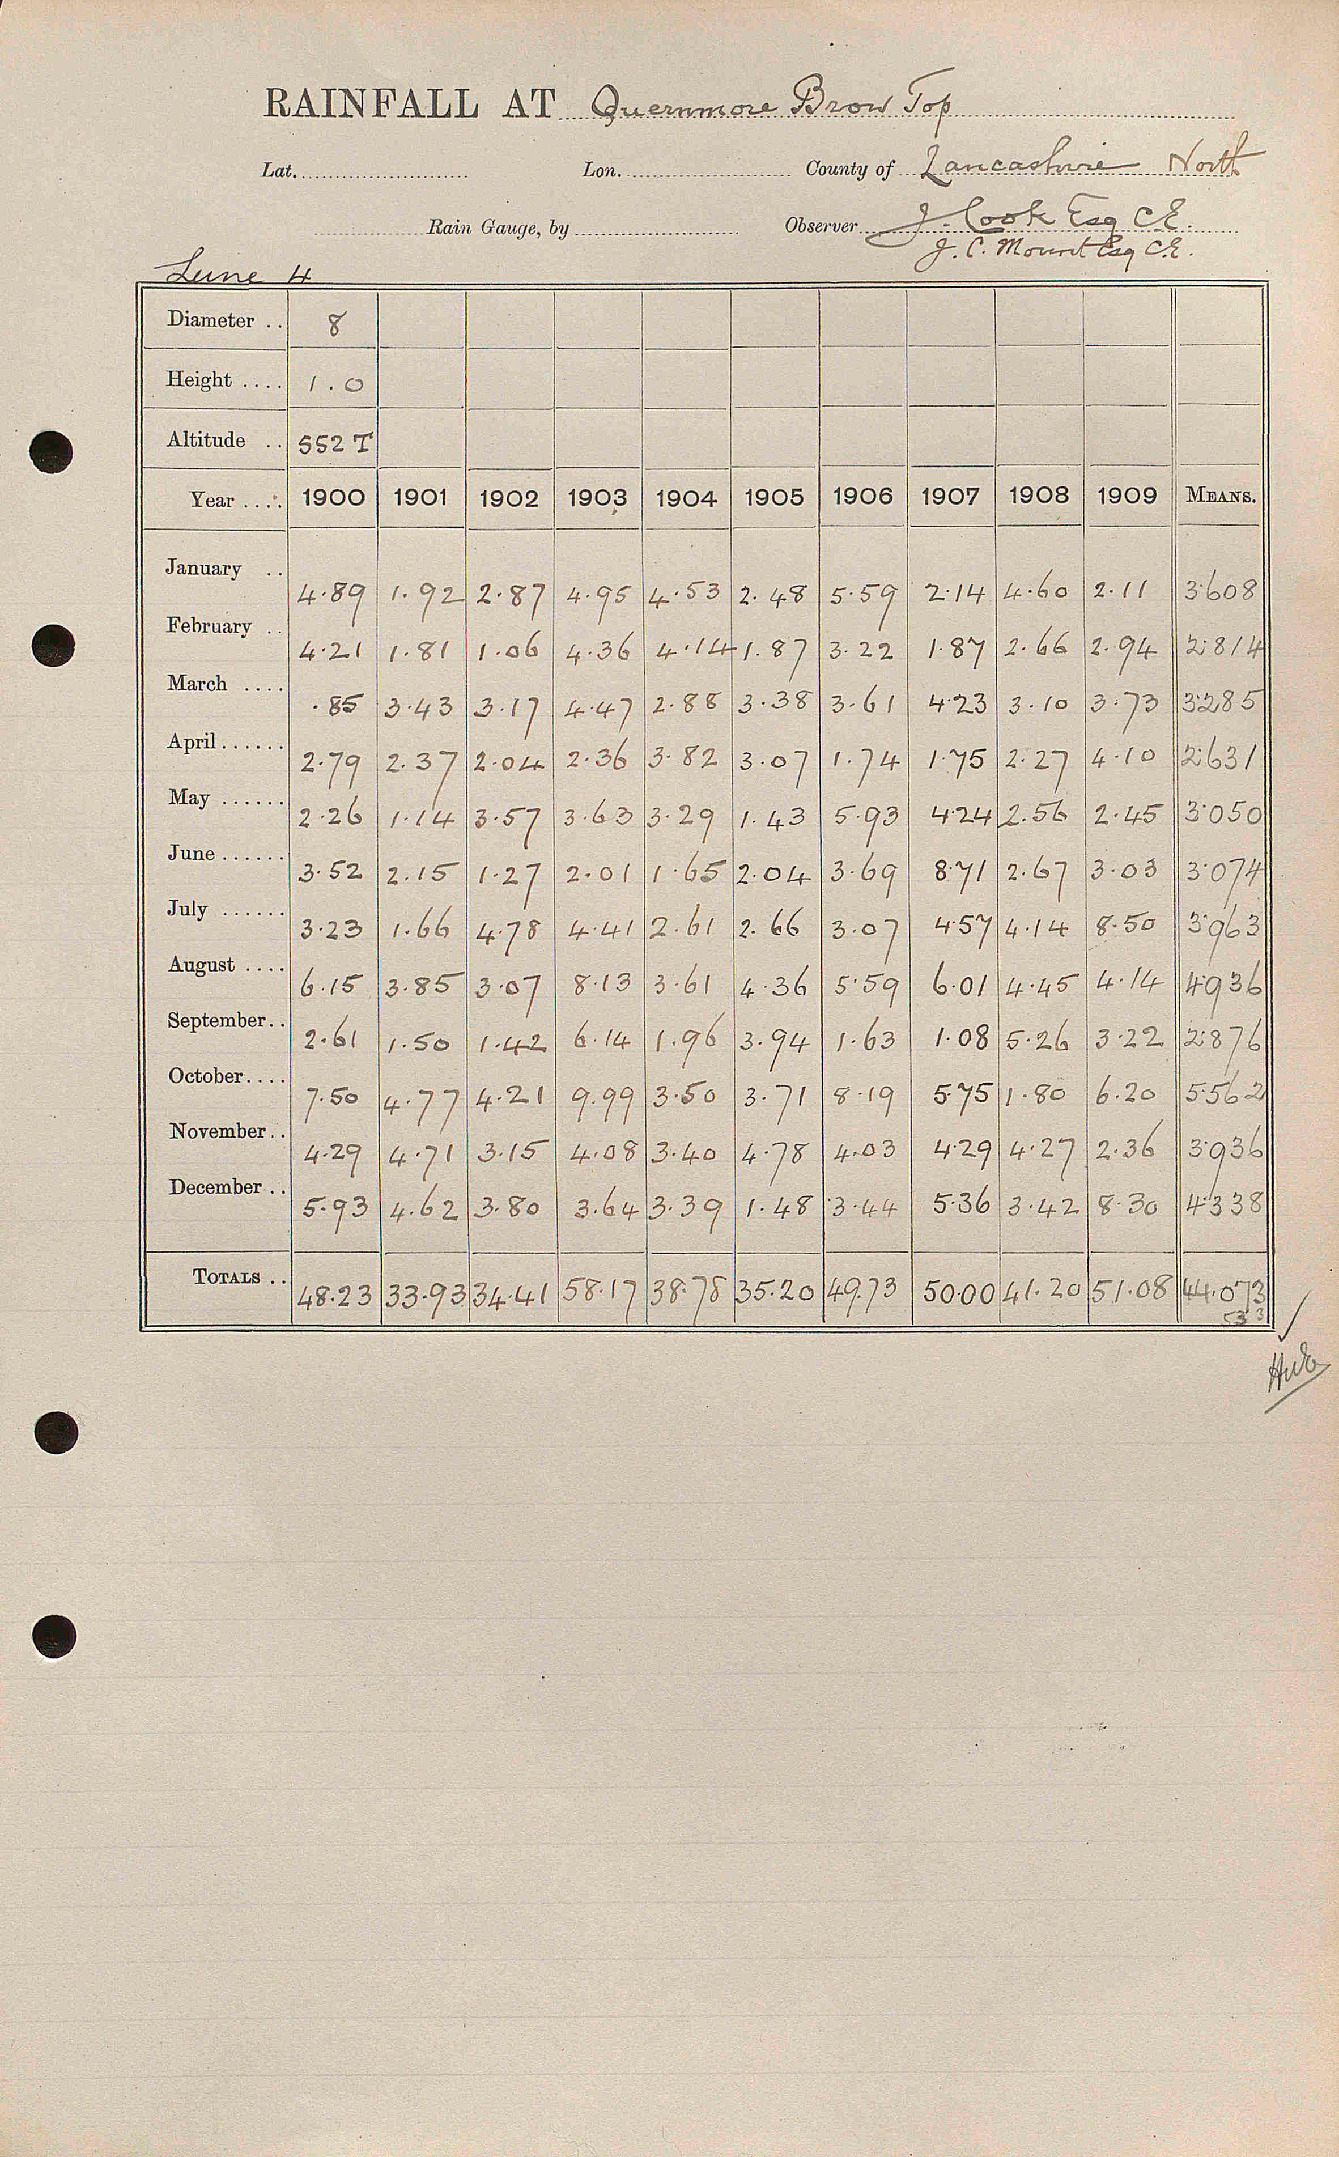 RAINFALL AT Quernmore Brow Top
Lat. Lon. County of Lancashire North
Rain Gauge, by Observer J. Cook Esq C.E.
J. C. Mount Esq C.E.
Lune 4
Diameter .. 8
Height .... 1.0
Altitude .. 552 T
Year .... 1900 1901 1902 1903 1904 1905 1906 1907 1908 1909 MEANS.
January .. 4.89 1.92 2.87 4.95 4.53 2.48 5.59 2.14 4.60 2.11 3.608
February .. 4.21 1.81 1.06 4.36 4.14 1.87 3.22 1.87 2.66 2.94 2.814
March .... .85 3.43 3.17 4.47 2.88 3.38 3.61 4.23 3.10 3.73 3.285
April ...... 2.79 2.37 2.04 2.36 3.82 3.07 1.74 1.75 2.27 4.10 2.631
May ...... 2.26 1.14 3.57 3.63 3.29 1.43 5.93 4.24 2.56 2.45 3.050
June ...... 3.52 2.15 1.27 2.01 1.65 2.04 3.69 8.71 2.67 3.03 3.074
July ...... 3.23 1.66 4.78 4.41 2.61 2.66 3.07 4.57 4.14 8.50 3.963
August .... 6.15 3.85 3.07 8.13 3.61 4.36 5.59 6.01 4.45 4.14 4.936
September .. 2.61 1.50 1.42 6.14 1.96 3.94 1.63 1.08 5.26 3.22 2.876
October .... 7.50 4.77 4.21 9.99 3.50 3.71 8.19 5.75 1.80 6.20 5.562
November .. 4.29 4.71 3.15 4.08 3.40 4.78 4.03 4.29 4.27 2.36 3.936
December .. 5.93 4.62 3.80 3.64 3.39 1.48 3.44 5.36 3.42 8.30 4.338
TOTALS .. 48.23 33.93 34.41 58.17 38.78 35.20 49.73 50.00 41.20 51.08 44.073
53 3